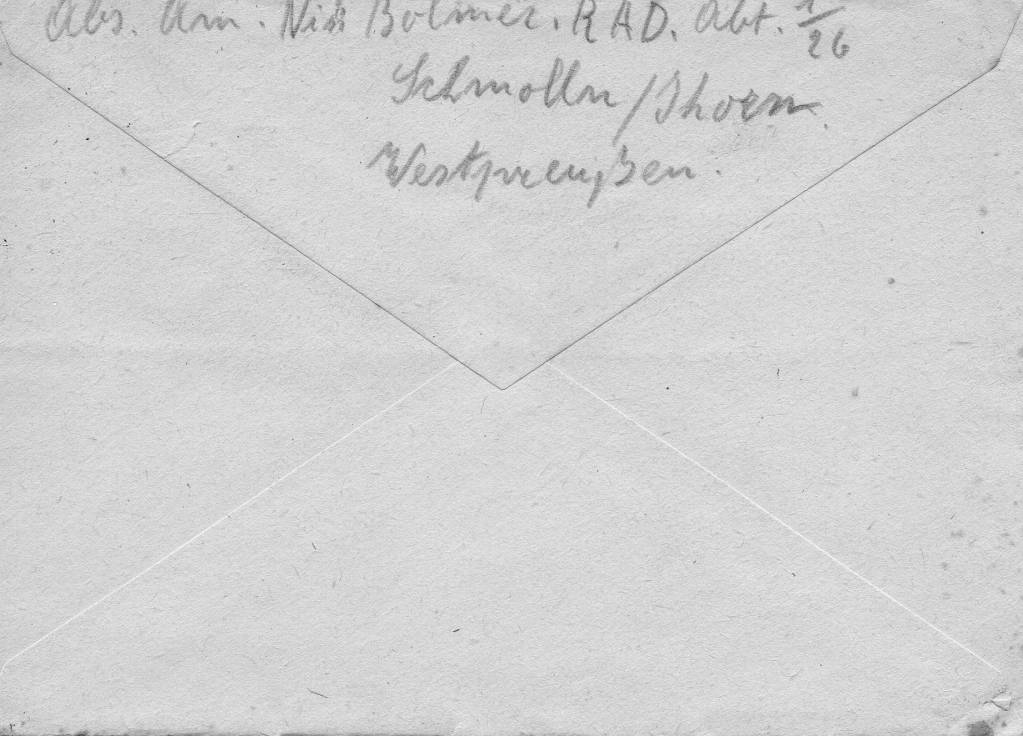 Abs. Am. Nis Bolmer. RAD. Abt. 1/26
Schmolln/Thorn.
Westpreußen.